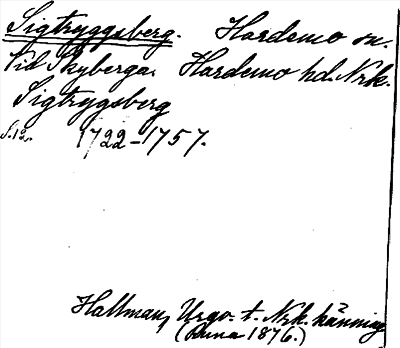 Sigtryggsberg. Hardemo sn.
Vid Skyberga. Hardemo hd. Nrk.
Sigtrygsberg
S. 12. 1722-1757.
Hallman, Urgv. t. Nrk. känning
(Runa 1876.)